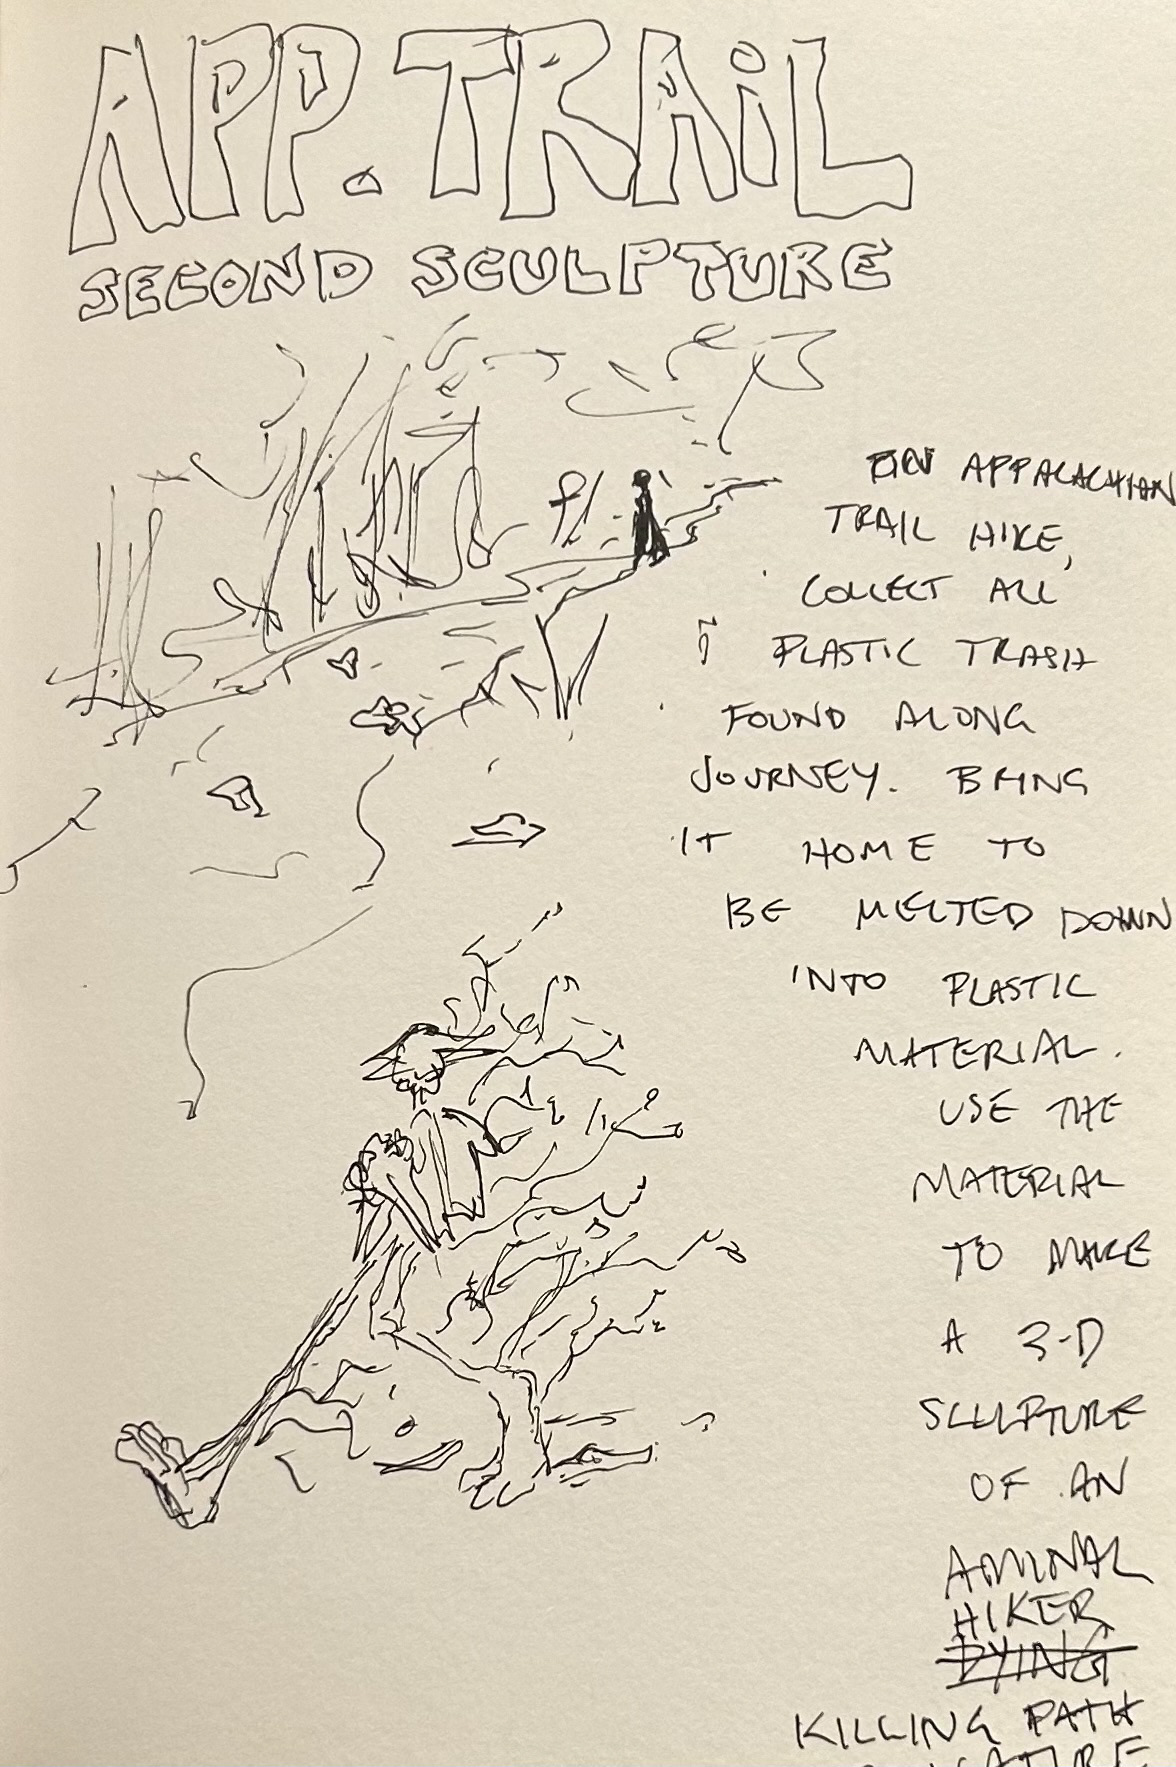 APP. TRAiL
SECOND SCULPTURE
ON APPALACHIAN
TRAIL HIKE,
COLLECT ALL
PLASTIC TRASH
FOUND ALONG
JOURNEY. BRING
IT HOME TO
BE MELTED DOWN
INTO PLASTIC
MATERIAL.
USE THE
MATERIAL
TO MAKE
A 3-D
SCULPTURE
OF AN
AMINAL
HIKER
DYING
KILLING PATH